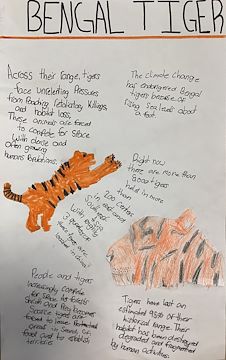 BENGAL TIGER
Across their range, tigers
face unrelenting Pressures
from Poaching, retaliatory Killings,
and habitat loss.
These animals are forced
to compete for Space
with dense and
often growing
humans Populations.
The climate Change
has endangered Bengal
tigers because of
rising sea levels about
a foot.
Right now
there are more than
tigers
held in more
than
200 Centers
in east and
with
3 quarters
these tigers are
located in china
People and tigers
increasingly compete
for space. As forests
Shrink and Prey becomes
Scarce tigers are
forced to leave
areas in search of
food and to establish
territories
Tigers have lost an
estimated 95% of their
historical range. Their
habitat has been destroyed
degraded and fragmented
by human activities